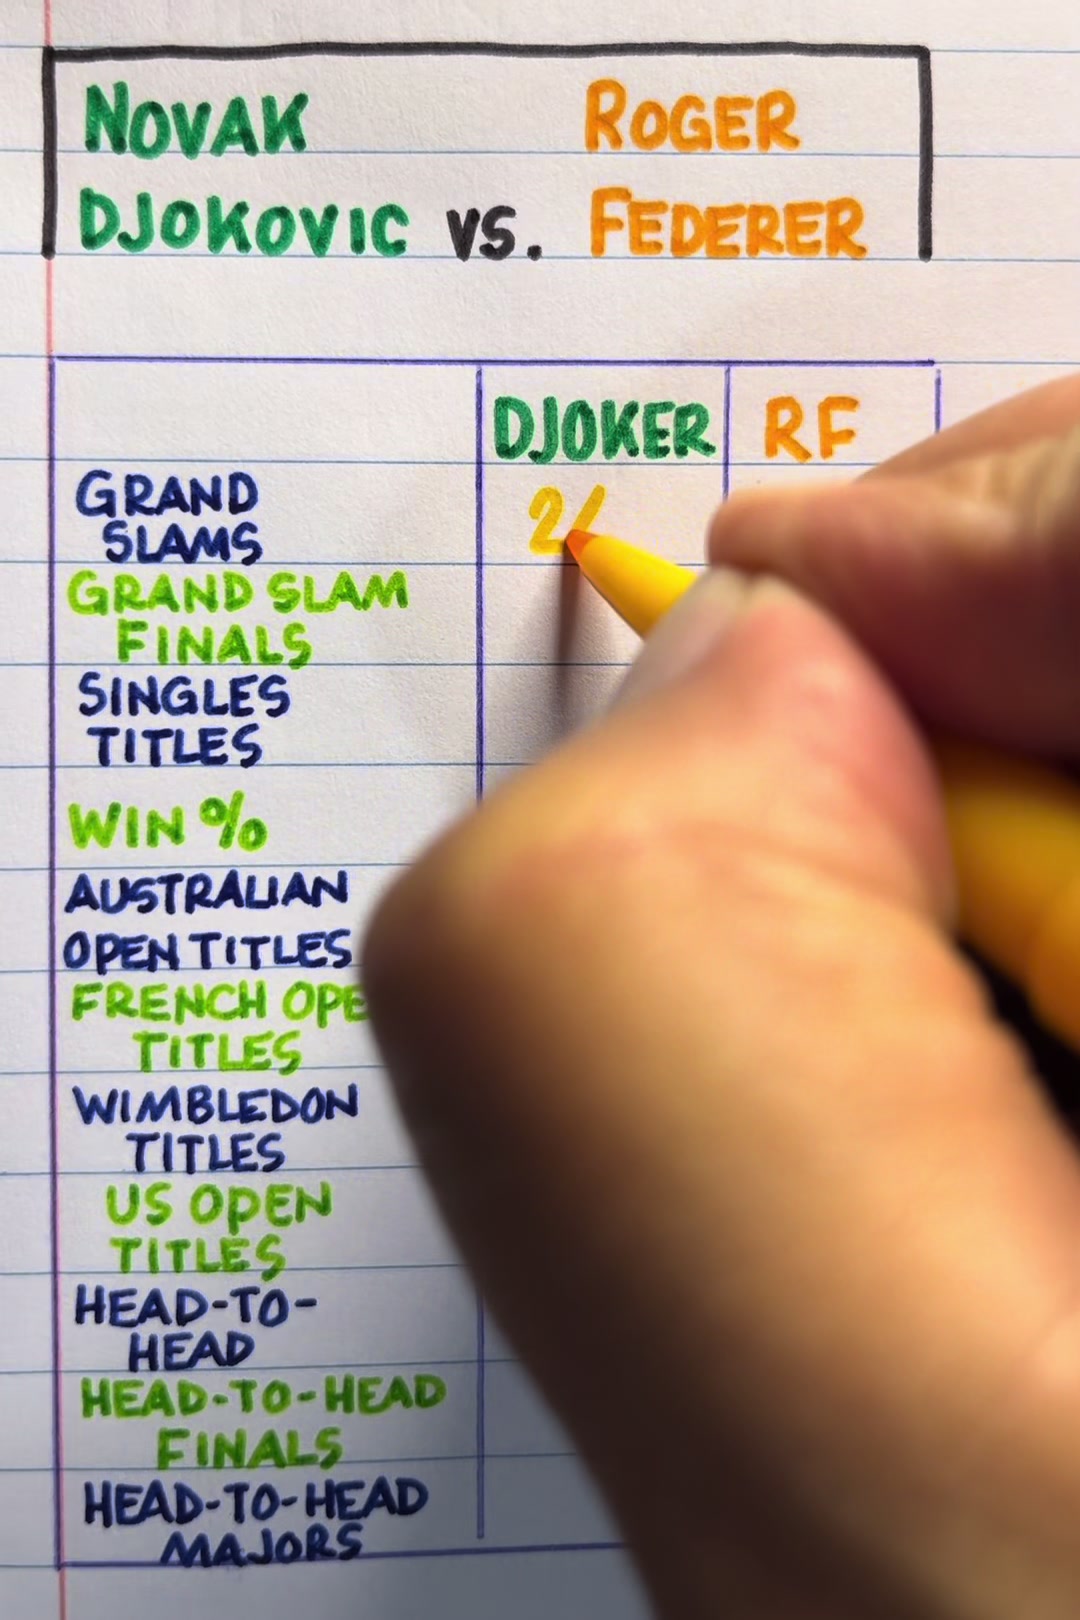 NOVAK ROGER
DJOKOVIC VS. FEDERER
DJOKER RF
GRAND
SLAMS
2
GRAND SLAM
FINALS
SINGLES
TITLES
WIN %
AUSTRALIAN
OPEN TITLES
FRENCH OPE
TITLES
WIMBLEDON
TITLES
US OPEN
TITLES
HEAD-TO-
HEAD
HEAD-TO-HEAD
FINALS
HEAD-TO-HEAD
MAJORS